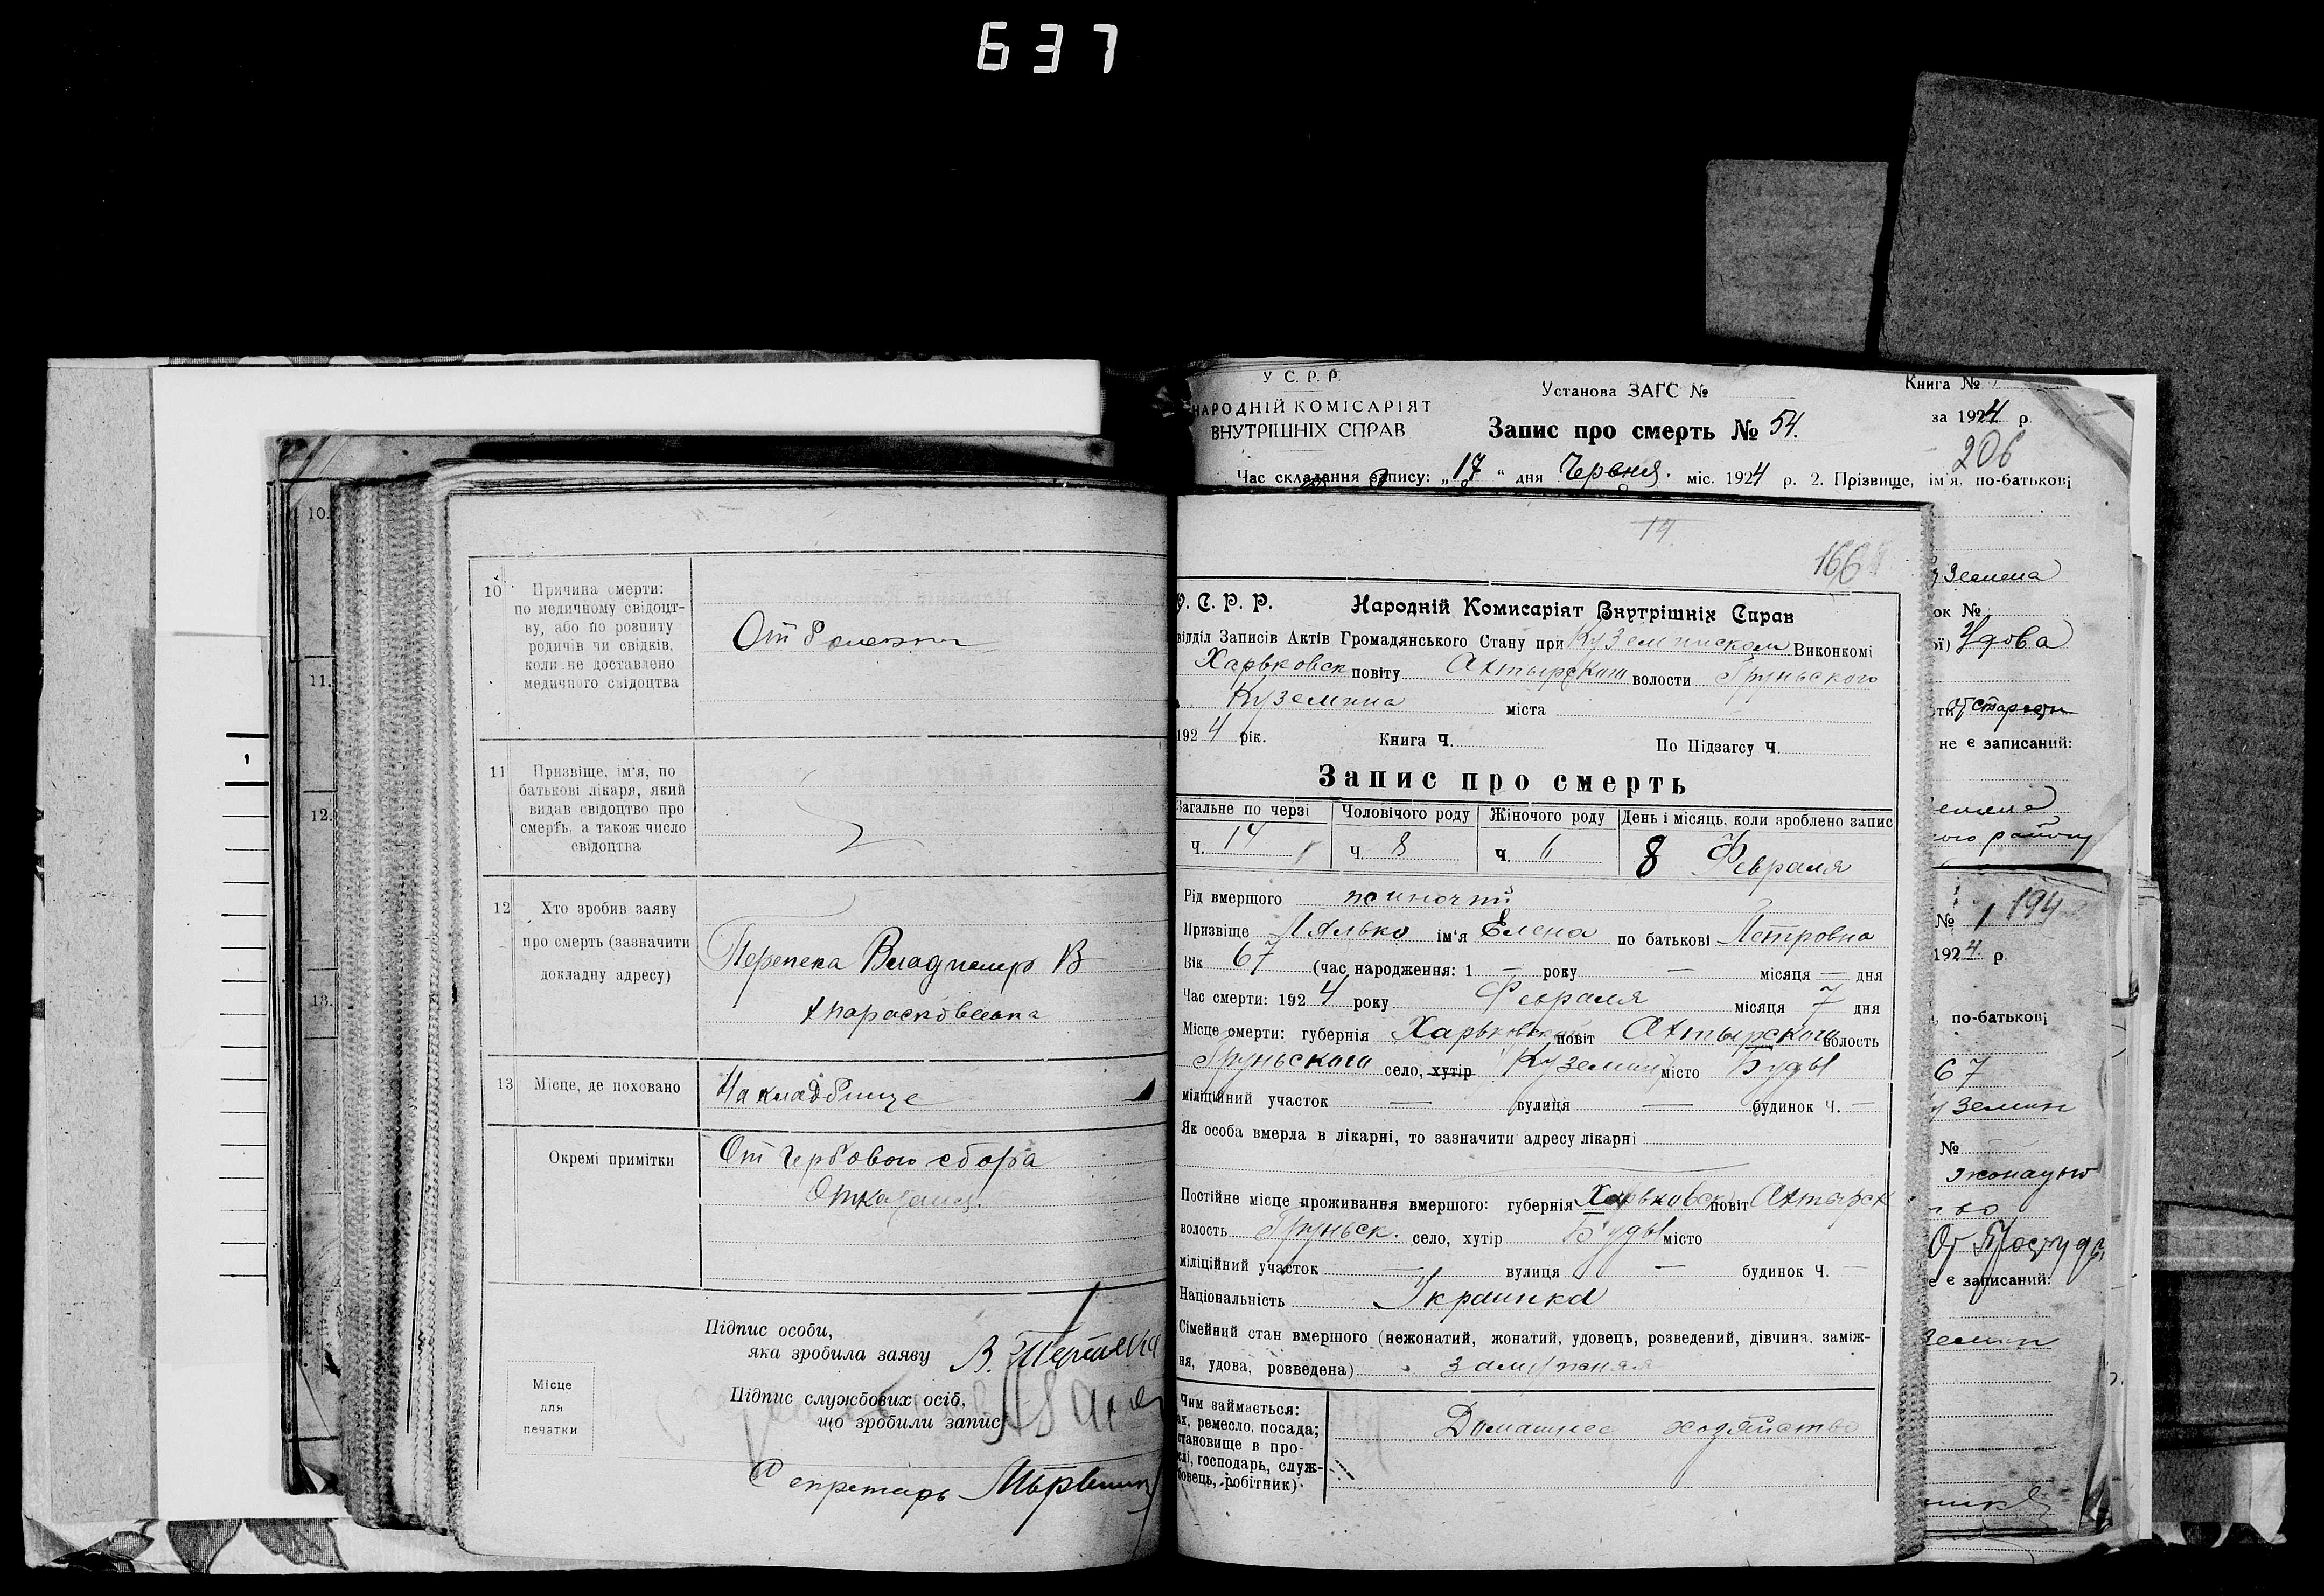 637
10 Причина смерти:
по медичному свідоцт-
ву, або по розпиту
родичів чи свідків,
коли не доставлено
медичного свідоцтва
От болезни
11 Призвіще, ім'я, по
батькові лікаря, який
видав свідоцтво про
смерть, а також число
свідоцтва
12 Хто зробив заяву
про смерть (зазначити
докладну адресу)
Перепека Владимир В
х Парасковеевка
13 Місце, де поховано
На кладбище
Окремі примітки
От гербового сбора
Отказался.
Підпис особи,
яка зробила заяву В. Перепека
Місце
для
печатки
Підпис службових осіб,
що зробили запис
Секретарь
10.
11.
12.
13.
1
У С. Р. Р.
НАРОДНІЙ КОМІСАРІЯТ
ВНУТРІШНІХ СПРАВ
Установа ЗАГС №
Запис про смерть № 54.
Книга №
за 1924 р.
206
Час складання запису: „17" дня Червня. міс. 1924 р. 2. Прізвище, ім'я, по-батькові
14
166
У. С. Р. Р. Народній Комисаріят Внутрішніх Справ
відділ Записів Актів Громадянського Стану при Куземинском Виконкомі
Харьковск повіту Ахтырского волости Груньского
Куземина міста
1924 рік. Книга Ч. По Підзагсу Ч.
Запис про смерть
Загальне по черзі Чоловічого роду Жіночого роду День і місяць, коли зроблено запис
Ч. 14 Ч. 8 Ч. 6 8 Февраля
Рід вмерщого жиночий
Призвіще Лялько ім'я Елена по батькові Петровна
Вік 67 (час народження: 1 — року — місяця — дня
Час смерти: 1924 року Февраля місяця 7 дня
Місце смерти: губернія Харьковской повіт Ахтырского волость
Груньского село, хутір Куземин місто Буды
міліційний участок — вулиця — будинок Ч. —
Як особа вмерла в лікарні, то зазначити адресу лікарні
Постійне місце проживання вмершого: губернія Харьковск повіт Ахтырск
волость Груньск. село, хутір Буды місто
міліційний участок — вулиця — будинок Ч. —
Національність Украинка
Сімейний стан вмершого (нежонатий, жонатий, удовець, розведений, дівчина, заміж-
ня, удова, розведена) замужняя
Чим займається:
ах, ремесло, посада;
становище в про-
слі, господарь, служ-
бовець, робітник)
Домашнее хозяйство
уземена
ок №
Удова
не є записаний:
ого району
№ 1 194
1924. р.
по-батькові
67
уземин
№
е є записаний:
земин